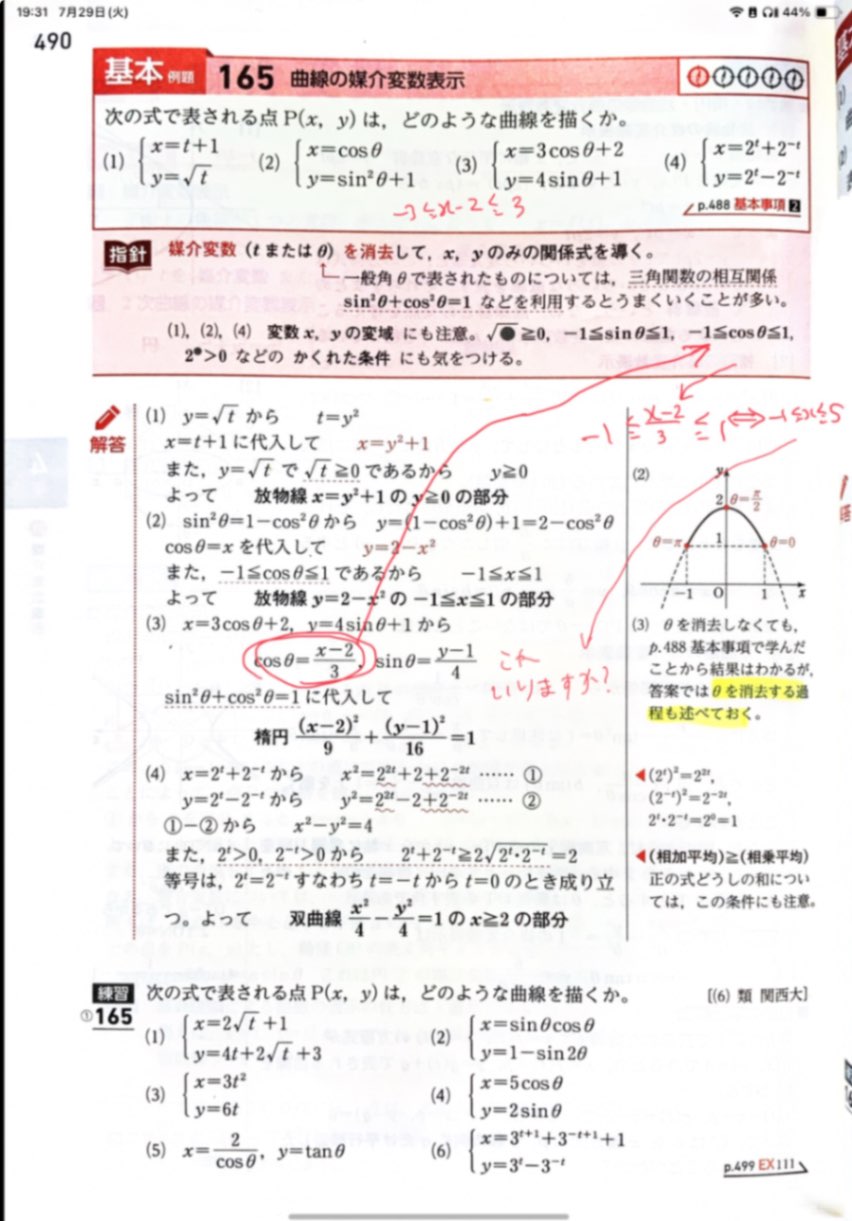 19:31 7月29日(火)
44%
490
基本 例題 165 曲線の媒介変数表示
次の式で表される点 P(x, y) は，どのような曲線を描くか。
(1) {x=t+1 y=√t (2) {x=cosθ y=sin²θ+1 (3) {x=3cosθ+2 y=4sinθ+1 (4) {x=2ᵗ+2⁻ᵗ y=2ᵗ−2⁻ᵗ
−3≦x−2≦3
p.488 基本事項 2
指針
媒介変数（t または θ）を消去して，x, y のみの関係式を導く。
一般角 θ で表されたものについては，三角関数の相互関係
sin²θ+cos²θ=1 などを利用するとうまくいくことが多い。
(1), (2), (4) 変数 x, y の変域 にも注意。√● ≧0, −1≦sinθ≦1, −1≦cosθ≦1,
2●>0 などの かくれた条件 にも気をつける。
−1≦(x−2)/3≦1⇔−1≦x≦5
解答
(1) y=√t から t=y²
x=t+1 に代入して x=y²+1
また，y=√t で √t≧0 であるから y≧0
よって 放物線 x=y²+1 の y≧0 の部分
(2) sin²θ=1−cos²θ から y=(1−cos²θ)+1=2−cos²θ
cosθ=x を代入して y=2−x²
また，−1≦cosθ≦1 であるから −1≦x≦1
よって 放物線 y=2−x² の −1≦x≦1 の部分
(3) x=3cosθ+2, y=4sinθ+1 から
cosθ=(x−2)/3, sinθ=(y−1)/4
これ
いりますか？
sin²θ+cos²θ=1 に代入して
楕円 (x−2)²/9+(y−1)²/16=1
(4) x=2ᵗ+2⁻ᵗ から x²=2²ᵗ+2+2⁻²ᵗ …… ①
y=2ᵗ−2⁻ᵗ から y²=2²ᵗ−2+2⁻²ᵗ …… ②
①−② から x²−y²=4
また，2ᵗ>0, 2⁻ᵗ>0 から 2ᵗ+2⁻ᵗ≧2√(2ᵗ・2⁻ᵗ)=2
等号は，2ᵗ=2⁻ᵗ すなわち t=−t から t=0 のとき成り立
つ。よって 双曲線 x²/4−y²/4=1 の x≧2 の部分
(2)
y
2 θ=π/2
θ=π 1 θ=0
−1 O 1 x
(3) θ を消去しなくても，
p.488 基本事項で学んだ
ことから結果はわかるが，
答案では θ を消去する過
程も述べておく。
◀(2ᵗ)²=2²ᵗ,
(2⁻ᵗ)²=2⁻²ᵗ,
2ᵗ・2⁻ᵗ=2⁰=1
◀(相加平均)≧(相乗平均)
正の式どうしの和につい
ては，この条件にも注意。
練習 ①165
次の式で表される点 P(x, y) は，どのような曲線を描くか。 [(6) 類 関西大]
(1) {x=2√t+1 y=4t+2√t+3 (2) {x=sinθcosθ y=1−sin2θ
(3) {x=3t² y=6t (4) {x=5cosθ y=2sinθ
(5) x=2/cosθ, y=tanθ (6) {x=3ᵗ⁺¹+3⁻ᵗ⁺¹+1 y=3ᵗ−3⁻ᵗ
p.499 EX 111